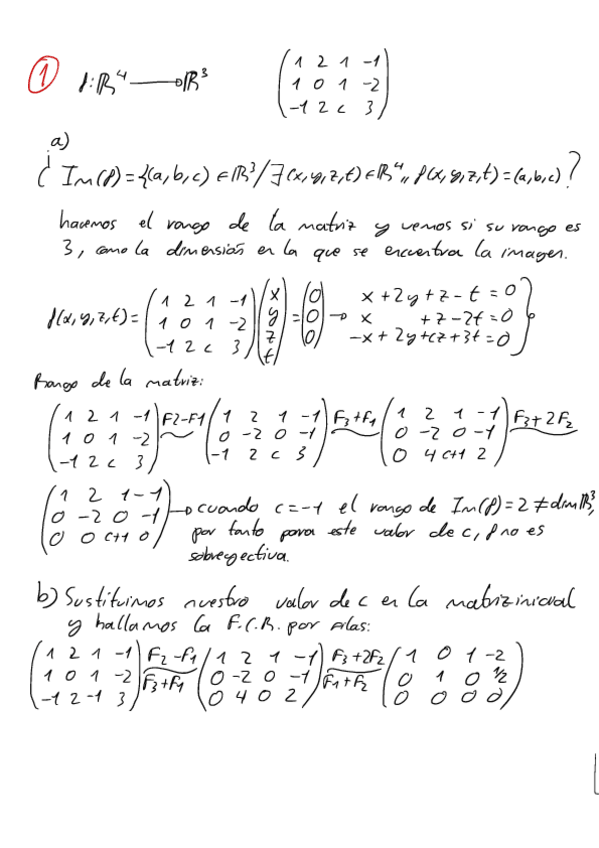 1 f: ℝ⁴ → ℝ³ (1 2 1 -1 / 1 0 1 -2 / -1 2 c 3)
a)
¿ Im(f) = {(a,b,c) ∈ ℝ³ / ∃ (x,y,z,t) ∈ ℝ⁴ ,, f(x,y,z,t) = (a,b,c) ?
hacemos el rango de la matriz y vemos si su rango es
3, como la dimensión en la que se encuentra la imagen.
f(x,y,z,t) = (1 2 1 -1 / 1 0 1 -2 / -1 2 c 3) (x / y / z / t) = (0 / 0 / 0) → x + 2y + z - t = 0
x + z - 2t = 0
-x + 2y + cz + 3t = 0 }
Rango de la matriz:
(1 2 1 -1 / 1 0 1 -2 / -1 2 c 3) F2-F1 (1 2 1 -1 / 0 -2 0 -1 / -1 2 c 3) F3+F1 (1 2 1 -1 / 0 -2 0 -1 / 0 4 c+1 2) F3+2F2
(1 2 1 -1 / 0 -2 0 -1 / 0 0 c+1 0) → cuando c=-1 el rango de Im(f)=2 ≠ dim ℝ³,
por tanto para este valor de c, f no es
sobreyectiva.
b) Sustituimos nuestro valor de c en la matriz inicial
y hallamos la F.C.R. por filas:
(1 2 1 -1 / 1 0 1 -2 / -1 2 -1 3) F2-F1 F3+F1 (1 2 1 -1 / 0 -2 0 -1 / 0 4 0 2) F3+2F2 F1+F2 (1 0 1 -2 / 0 1 0 1/2 / 0 0 0 0)